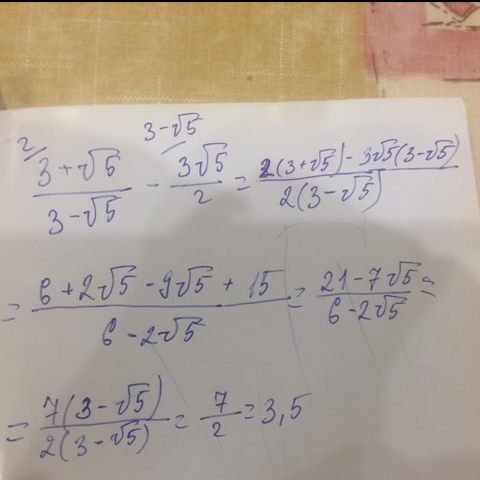 2/ 3-√5/
(3+√5)/(3-√5) - (3√5)/2 = (2(3+√5)-3√5(3-√5))/(2(3-√5))
= (6+2√5-9√5+15)/(6-2√5) = (21-7√5)/(6-2√5) =
= (7(3-√5))/(2(3-√5)) = 7/2 = 3,5